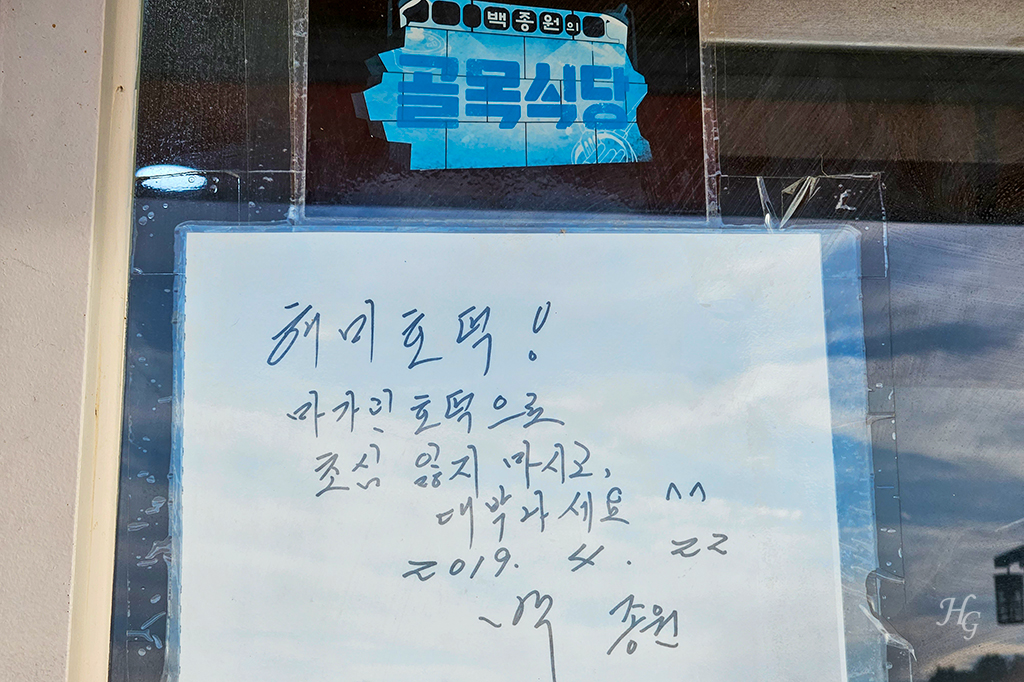 백종원의
골목식당
해미호떡!
마가린호떡으로
초심 잃지 마시고,
대박나세요 ^^
2019. 4. 22
백종원
HG